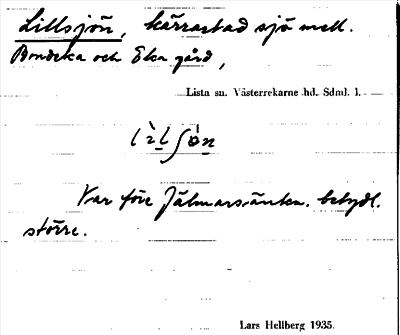 Lillsjön, kärrartad sjö mell.
Bondeka och Eka gård,
Lista sn. Västerrekarne hd. Sdml. l.
Var före Jälmarsänkn. betydl.
större.
Lars Hellberg 1935.